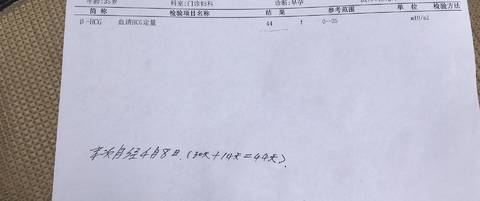 年龄:35岁 科室:门诊妇科 诊断:早孕
简 称 检验项目名称 结 果 参考范围 单 位 检验方法
β-HCG 血清HCG定量 44 ↑ 0--25 mIU/ml
末次月经4月8日.(30天+14天=44天).